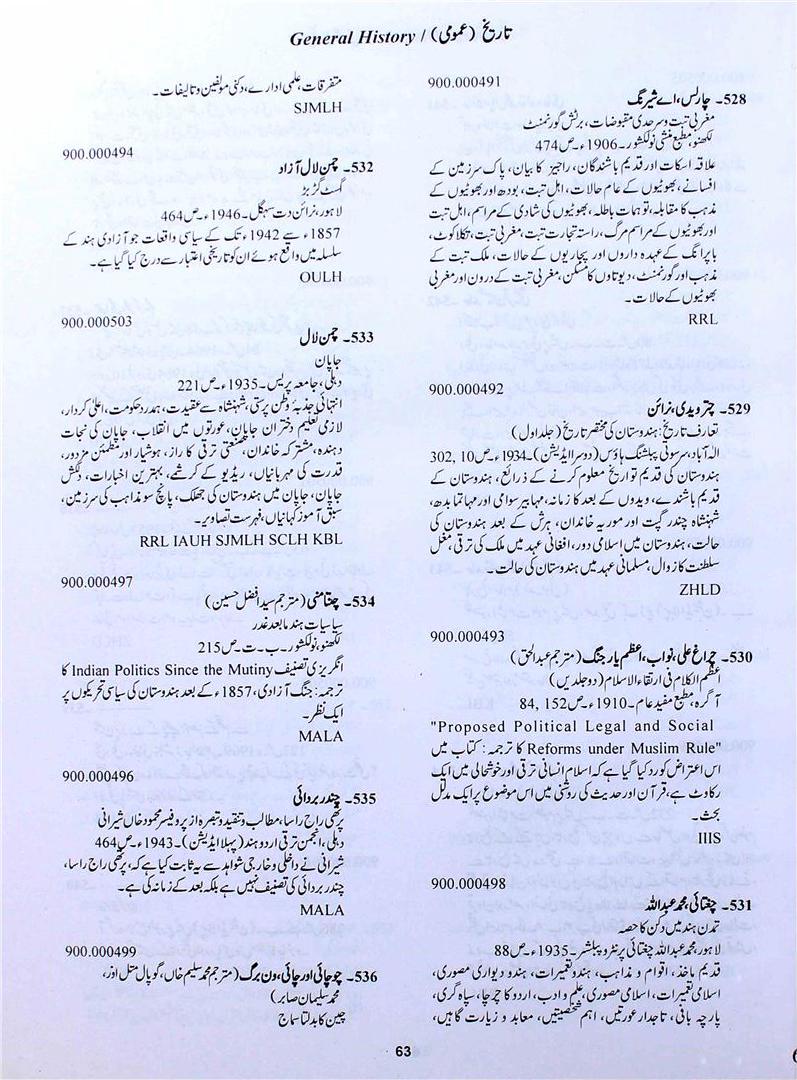 General History / تاریخ (عمومی)
900.000491
528۔ چارلس، اے شیرنگ
مغربی تبت و سرحدی مقبوضات، برٹش گورنمنٹ
لکھنؤ، مطبع منشی نولکشور۔ 1906ء۔ ص 474
علاقہ اسکات اور قدیم باشندگان، راجپوت کا بیان، پاک سرزمین کے
افسانے، بھوٹیوں کے عام حالات، اہل تبت، بودھ اور بھوٹیوں کے
مذہب کا مقابلہ، توہمات باطلہ، بھوٹیوں کی شادی کے مراسم، اہل تبت
اور بھوٹیوں کے مراسم مرگ، راستہ تجارت تبت، مغربی تبت، تکلاکوٹ،
یا پرانگ کے عہدہ داروں اور پجاریوں کے حالات، ملک تبت کے
مذہب اور گورنمنٹ، دیوتاوں کا مسکن، مغربی تبت کے درون اور مغربی
بھوٹیوں کے حالات۔
RRL
900.000492
529۔ چترویدی، نرائن
تعارف تاریخ: ہندوستان کی مختصر تاریخ (جلد اول)
الہ آباد، سرسوتی پبلشنگ ہاؤس (دوسرا ایڈیشن)۔ 1934ء۔ ص 10, 302
ہندوستان کی قدیم تواریخ معلوم کرنے کے ذرائع، ہندوستان کے
قدیم باشندے، ویدوں کے بعد کا زمانہ، مہابیر سوامی اور مہاتما بدھ،
شہنشاہ چندر گپت اور موریہ خاندان، ہرش کے بعد ہندوستان کی
حالت، ہندوستان میں اسلامی دور، افغانی عہد میں ملک کی ترقی، مغل
سلطنت کا زوال، مسلمانی عہد میں ہندوستان کی حالت۔
ZHLD
900.000493
530۔ چراغ علی، نواب، اعظم یار جنگ (مترجم عبدالحق)
اعظم الکلام فی ارتقاء الاسلام (دو جلدیں)
آگرہ، مطبع مفید عام۔ 1910ء۔ ص 152, 84
"Proposed Political Legal and Social
Reforms under Muslim Rule" کا ترجمہ: کتاب میں
اس اعتراض کو رد کیا گیا ہے کہ اسلام انسانی ترقی اور خوشحالی میں ایک
رکاوٹ ہے، قرآن اور حدیث کی روشنی میں اس موضوع پر ایک مدلل
بحث۔
IIIS
900.000498
531۔ چغتائی، محمد عبداللہ
تمدن ہند میں دکن کا حصہ
لاہور، محمد عبداللہ چغتائی پرنٹر و پبلشر۔ 1935ء۔ ص 88
قدیم ماخذ، اقوام و مذاہب، ہندو تعمیرات، ہندو دیواری مصوری،
اسلامی تعمیرات، اسلامی مصوری، علم و ادب، اردو کا چرچا، سپاہ گری،
پارچہ بافی، تاجدار عورتیں، اہم شخصیتیں، معابد و زیارت گاہیں،
متفرقات، علمی ادارے، دکنی مولفین و تالیفات۔
SJMLH
900.000494
532۔ چمن لال آزاد
گھمٹ گڑبڑ
لاہور، نرائن دت سہگل۔ 1946ء۔ ص 464
1857ء سے 1942ء تک کے سیاسی واقعات جو آزادی ہند کے
سلسلہ میں واقع ہوئے ان کو تاریخی اعتبار سے درج کیا گیا ہے۔
OULH
900.000503
533۔ چمن لال
جاپان
دہلی، جامعہ پریس۔ 1935ء۔ ص 221
انتہائی جذبۂ وطن پرستی، شہنشاہ سے عقیدت، ہمدرد حکومت، اعلیٰ کردار،
لازمی تعلیم، دختران جاپان، عورتوں میں انقلاب، جاپان کی نجات
دہندہ، مشترکہ خاندان، صنعتی ترقی کا راز، ہوشیار اور مطمئن مزدور،
قدرت کی مہربانیاں، ریڈیو کے کرشمے، بہترین اخبارات، دلکش
جاپان، جاپان میں ہندوستان کی جھلک، پانچ سو مذاہب کی سرزمین،
سبق آموز کہانیاں، فہرست تصاویر۔
RRL IAUH SJMLH SCLH KBL
900.000497
534۔ چنتامنی (مترجم سید افضل حسین)
سیاسیات ہند مابعد غدر
لکھنؤ، نولکشور۔ ب۔ ت۔ ص 215
انگریزی تصنیف Indian Politics Since the Mutiny کا
ترجمہ: جنگ آزادی، 1857ء کے بعد ہندوستان کی سیاسی تحریکوں پر
ایک نظر۔
MALA
900.000496
535۔ چندر بردائی
پرتھی راج راسا، مطالب و تنقید و تبصرہ از پروفیسر محمود خاں شیرانی
دہلی، انجمن ترقی اردو ہند (پہلا ایڈیشن)۔ 1943ء۔ ص 464
شیرانی نے داخلی و خارجی شواہد سے یہ ثابت کیا ہے کہ، پرتھی راج راسا،
چندر بردائی کی تصنیف نہیں ہے بلکہ بعد کے زمانہ کی ہے۔
MALA
900.000499
536۔ چوچائی اور چائی، ون برگ (مترجم محمد سلیم خاں، گوپال متل اور،
محمد سلیمان صابر)
چین کا بدلتا سماج
63